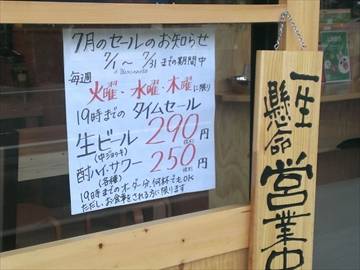 7月のセールのお知らせ
7/1〜7/31までの期間中
毎週
火曜・水曜・木曜に限り
19時までのタイムセール
生ビール290円
(中ジョッキ)
(税込)
酎ハイ・サワー250円
(各種)
(税込)
19時までのオーダー分、何杯でもOK
ただし、お食事をされる方に限ります
一生
懸命
営業中